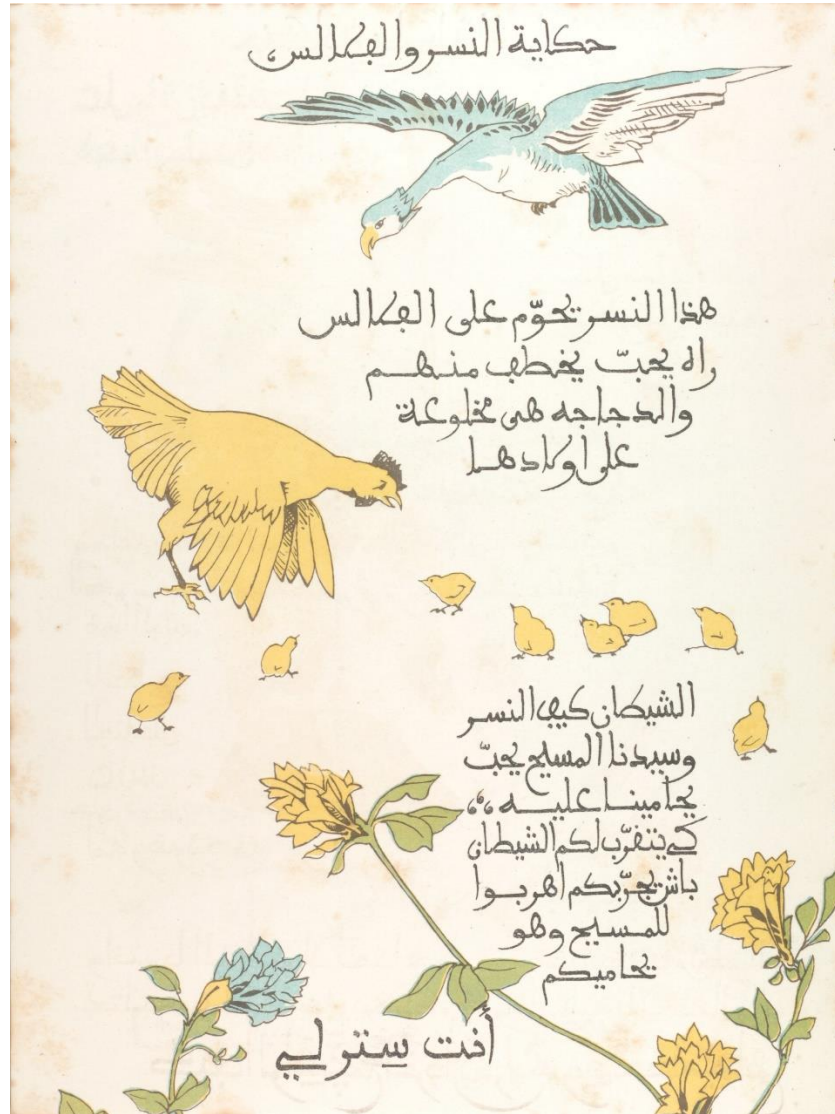 حكاية النسر والفلالس
هذا النسر يحوّم على الفلالس
راه يحبّ يخطف منهم
والدجاجه هي مخلوعة
على اولادها
الشيطان كيف النسر
وسيدنا المسيح يحبّ
يحامينا عليه
كي يتقرّب لكم الشيطان
باش يجرّبكم اهربوا
للمسيح وهو
يحاميكم
أنت سِتر لي